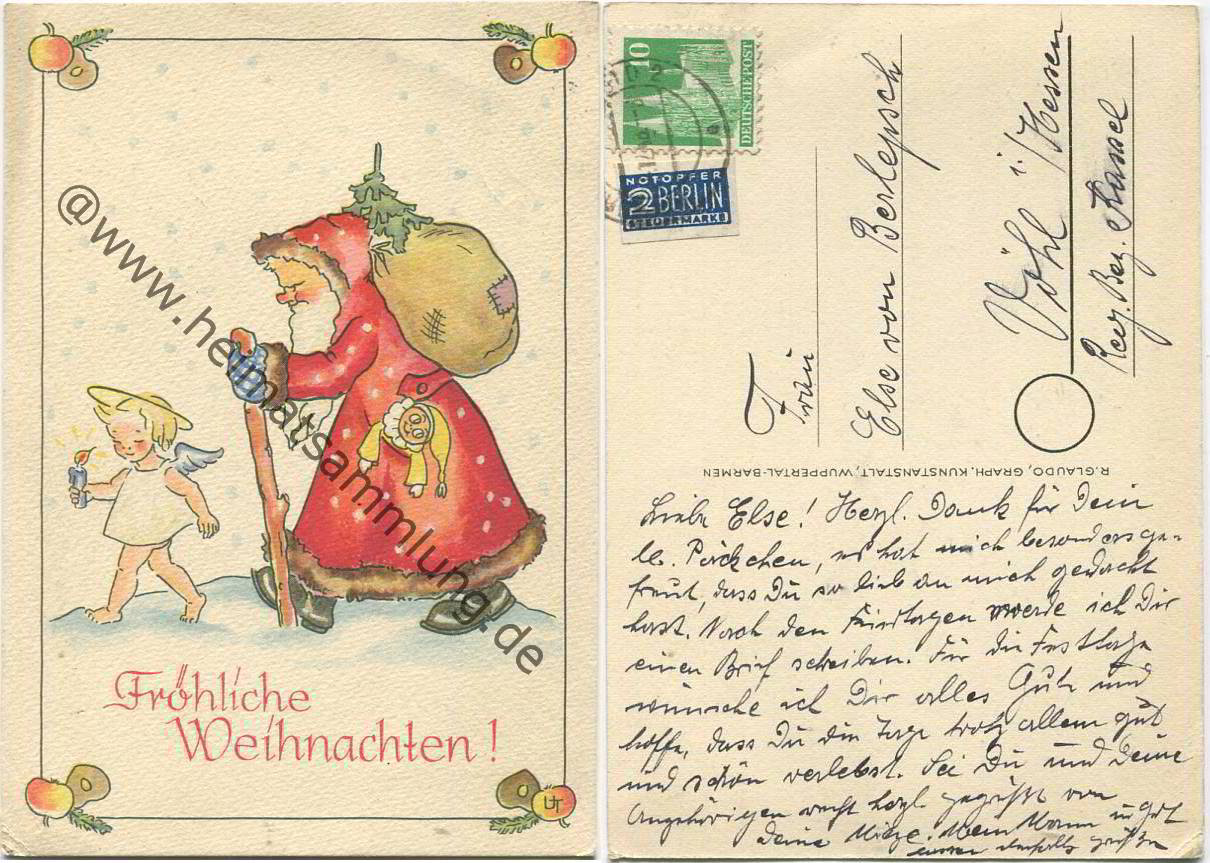 @www.heimatsammlung.de
Fröhliche
Weihnachten!
UT
10
DEUTSCHE POST
NOTOPFER
2 BERLIN
STEUERMARKE
Frau
Else von Berlepsch
Vöhl i/Hessen
Reg. Bez. Kassel
R. GLAUDO, GRAPH. KUNSTANSTALT, WUPPERTAL-BARMEN
Liebe Else! Herzl. Dank für Dein
lb. Päckchen, es hat mich besonders ge-
freut, dass Du so lieb an mich gedacht
hast. Nach den Feiertagen werde ich Dir
einen Brief schreiben. Für die Festtage
wünsche ich Dir alles Gute und
hoffe, dass Du die Tage trotz allem gut
und schön verlebst. Sei Du und Deine
Angehörigen recht herzl. gegrüßt von
Deine Mieze. Mein Mann
ebenfalls grüßen